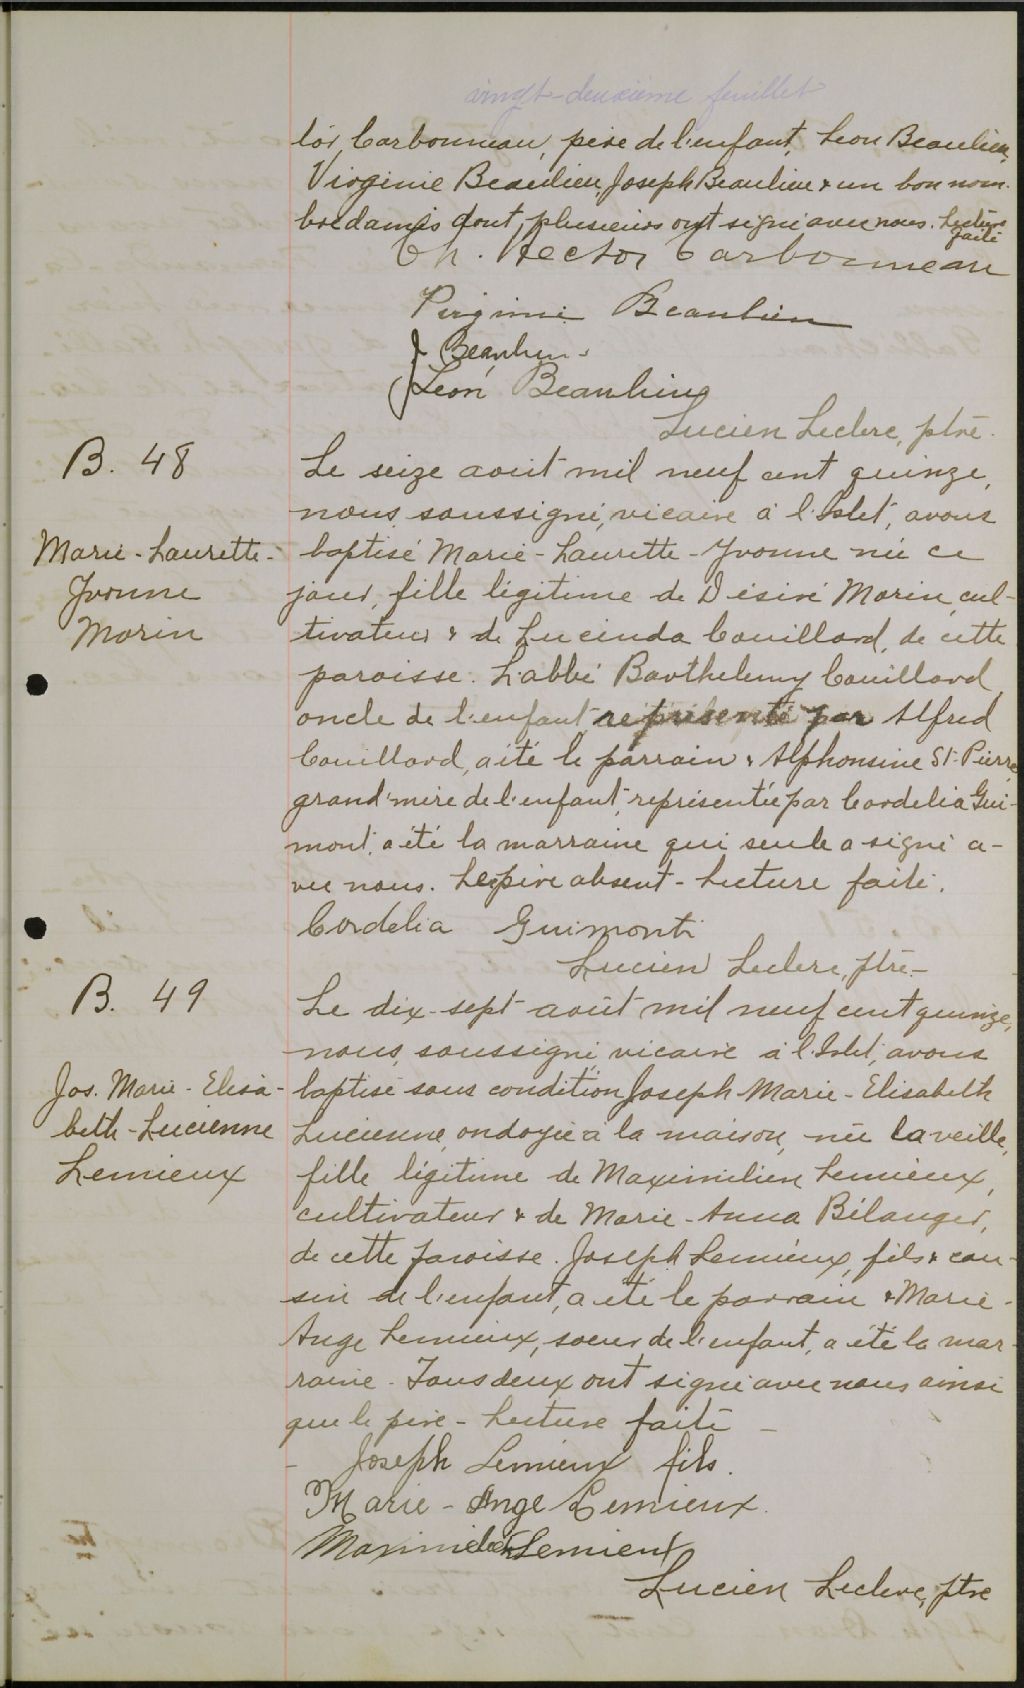 vingt-deuxième feuillet
tor Carbonneau, père de l'enfant, Leon Beaulieu,
Virginie Beaulieu, Joseph Beaulieu & un bon nom-
bre d'amis dont plusieurs ont signé avec nous. Lecture
faite
Th. Hector Carbonneau
Virginie Beaulieu
J Beaulieu
Léon Beaulieu
Lucien Leclerc, ptre.
B. 48
Marie-Laurette-
Yvonne
Morin
Le seize août mil neuf cent quinze,
nous, soussigné, vicaire à l'Islet, avons
baptisé Marie-Laurette-Yvonne née ce
jour, fille légitime de Désiré Morin, cul-
tivateur & de Lucinda Couillard, de cette
paroisse. L'abbé Barthelemy Couillard,
oncle de l'enfant, représenté par Alfred
Couillard, a été le parrain & Alphonsine St-Pierre,
grand'mère de l'enfant, représentée par Cordelia Gui-
mont, a été la marraine qui seule a signé a-
vec nous. Le père absent - Lecture faite.
Cordelia Guimont
Lucien Leclerc, ptre-
B. 49
Jos. Marie-Elisa-
beth-Lucienne
Lemieux
Le dix-sept août mil neuf cent quinze,
nous, soussigné, vicaire à l'Islet, avons
baptisé sous condition Joseph Marie-Elisabeth
Lucienne, ondoyée à la maison, née la veille,
fille légitime de Maximilien Lemieux,
cultivateur & de Marie-Anna Bélanger,
de cette paroisse. Joseph Lemieux, fils & cou-
sin de l'enfant, a été le parrain & Marie-
Ange Lemieux, soeur de l'enfant, a été la mar-
raine. Tous deux ont signé avec nous ainsi
que le père - Lecture faite -
Joseph Lemieux fils.
Marie-Ange Lemieux.
Maximilien Lemieux
Lucien Leclerc, ptre